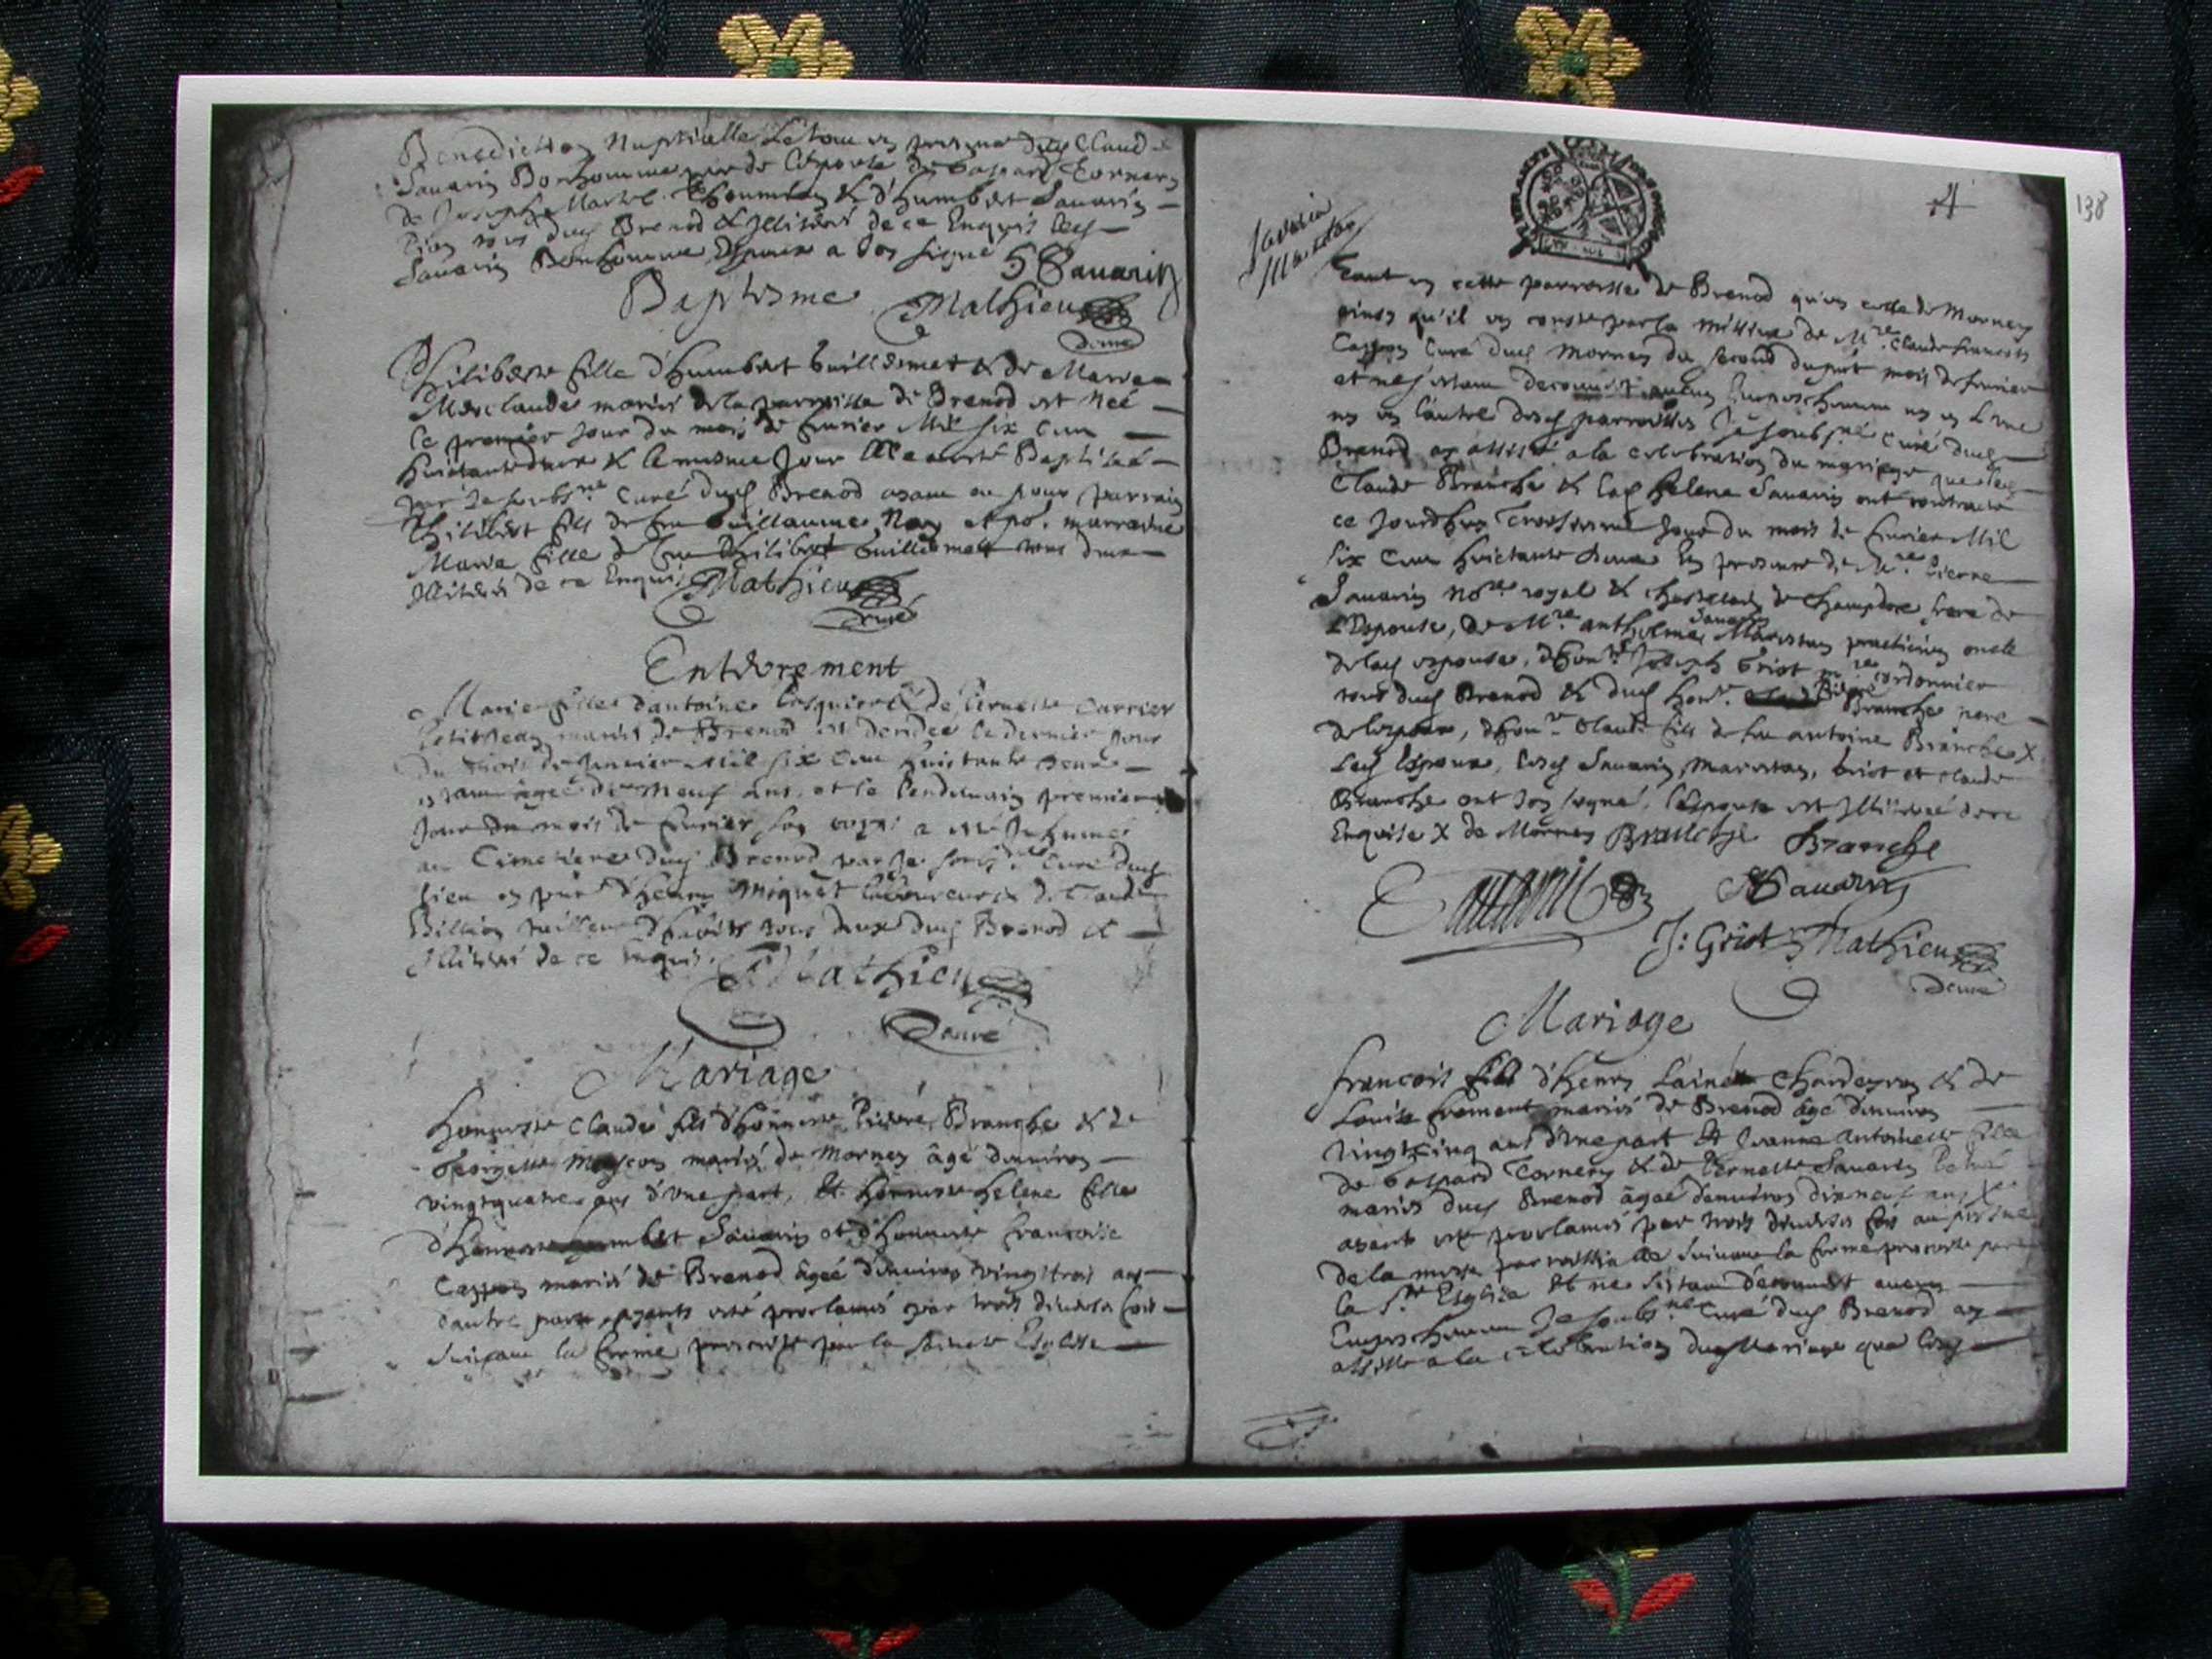 Benediction Nuptialle le tout en presence dud Claude
Sauarin Bonhomme de l'espouse de Gaspard Tornery
de Joseph Martel & d'humbert Sauarin
tous dud Brenod & Illiterés de ce Enquis led
Sauarin Bonhomme a son signé Sauarin
Baptisme Mathieu
Curé
Philiberte fille d'humbert Guillermet & de Marie
Merclande mariés de la parroisse de Brenod est née
le premier Jour du mois de feurier Mil six cent
huictante deux & le mesme Jour Elle a esté Baptisée
par Je soubs.né Curé dud Brenod ayant eu pour parrain
Philibert fils de feu Guillaume Nay et po.r marraine
Marie fille de feu Philibert Guillermet tous deux
Illiterés de ce Enquis Mathieu
Curé
Enterrement
Marie fille d'antoine & de Pernette Carrier
Petitjean mariés de Brenod est decedée le dernier jour
du mois de Janvier Mil six cent huictante deux
estant agée de Neuf ans, et le lendemain premier
Jour du mois de feurier son corps a esté Inhumé
au Cimetiere dud Brenod par Je soubs.né Curé dud
lieu en pñce d'henry Miguet laboureur & de Claude
Billion tailleur d'habits tous deux dud Brenod &
Illiterés de ce enquis. Mathieu
Curé
Mariage
honneste Claude fils d'honneste Pierre Branche & de
Georgette mariés de Mornay âgé d'enuiron
vingtquatre ans d'vne part, Et honneste helene fille
d'honneste humbert Sauarin et d'honneste francoise
Cappon mariés de Brenod âgée d'enuiron vingttrois ans
dautre part, ayants esté proclamés par trois diuerses fois
suiuant la forme prescritte par la saincte Esglise
138
4
Savarin
Marestan
tant en cette parroisse de Brenod qu'en celle de Mornay
ainsy qu'il en conste par la missiue de M.re Claude francois
Cappon Curé dud Mornay du second dupñt mois de feurier
et ne s'estant decouuert aucun Empeschement ny en l'vne
ny en l'autre desd parroisses Je soubs.né Curé dud
Brenod ay assisté a la celebration du mariage que led
Claude Branche & lad helene Sauarin ont contracté
ce Jourdhuy Troisiesme Jour du mois de feurier Mil
six cent huictante deux En presence de M.re Pierre
Sauarin No.re royal & chastelain de Champdor frere de
l'Espouse, de M.re anthelme Sauarin Marestan practicien oncle
de lad espouse, d'hon.te Joseph Griot m.re cordonnier
tous dud Brenod & dud hon.te Pierre Branche pere
de lespoux, d'hon.te Claude fils de feu antoine Branche X
Led Espoux, lesd Sauarin, Marestan, Griot et Claude
Branche ont soy signé, l'espouse est Illiterée de ce
Enquise X de Mornay Branche Branche
Sauarin Sauarin
J: Griot Mathieu
Curé
Mariage
francois fils d'henry Laine Chardeyron & de
Louise froment mariés de Brenod âgé d'enuiron
vingtcinq ans d'vne part Et Jeanne Antoinette fille
de Gaspard Tornery & de Pernette Sauarin
mariés dud Brenod âgée d'enuiron dixneuf ans
ayants esté proclamés par trois diuerses fois au prosne
de la messe parroissialle suiuant la forme prescritte par
la S.te Esglise Et ne s'estant decouuert aucun
Empeschement Je soubs.né Curé dud Brenod ay
assisté a la celebration du Mariage que lesd